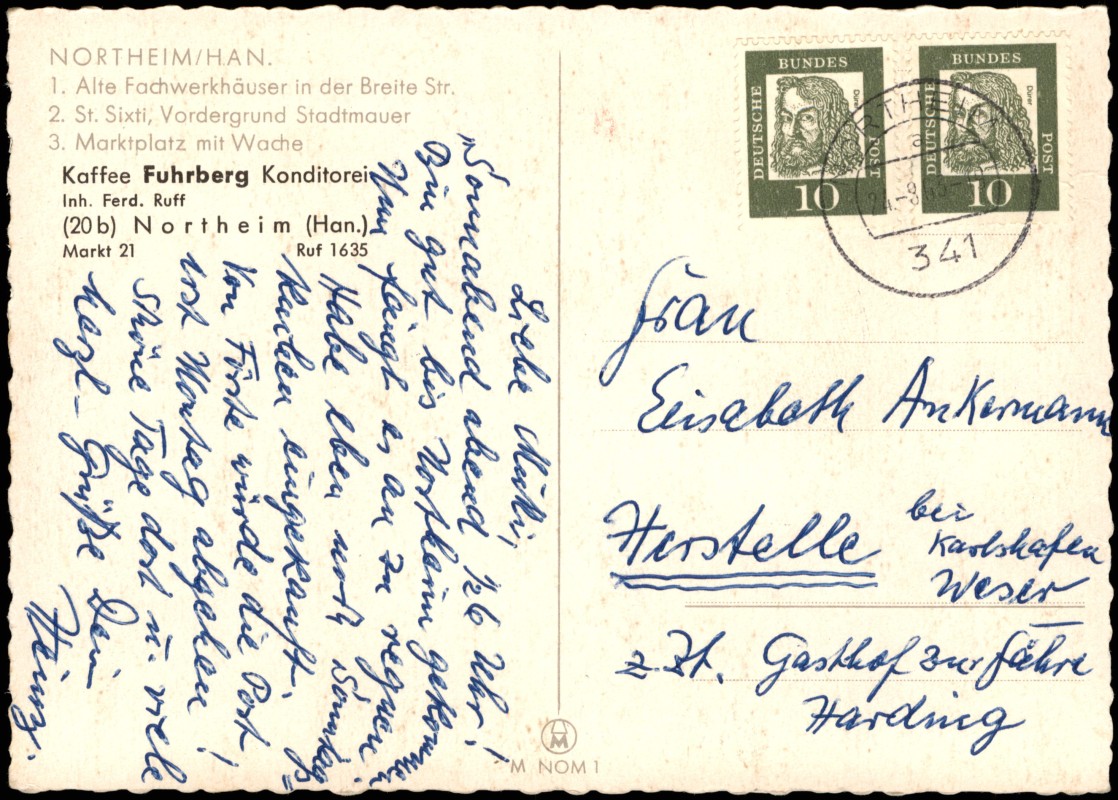 NORTHEIM/HAN.
1. Alte Fachwerkhäuser in der Breite Str.
2. St. Sixti, Vordergrund Stadtmauer
3. Marktplatz mit Wache
Kaffee Fuhrberg Konditorei
Inh. Ferd. Ruff
(20b) Northeim (Han.)
Markt 21 Ruf 1635
Liebe Mutti,
Sonnabend abend 1/26 Uhr!
Bin gut bis Northeim gekommen
Nun fängt es an zu regnen.
Habe eben noch Sonntags=
kuchen eingekauft.
Von Förste würde die Post
erst Montag abgehen!
Schöne Tage dort u. viele
herzl. Grüße Dein
Heinz.
DEUTSCHE BUNDES POST
Dürer
10
DEUTSCHE BUNDES POST
Dürer
10
NORTHEIM
a
24.-8.63-
341
Frau
Elisabeth Ankermann
Herstelle
bei
Karlshafen
Weser
z. Zt. Gasthof zur Fähre
Harding
M
M NOM 1